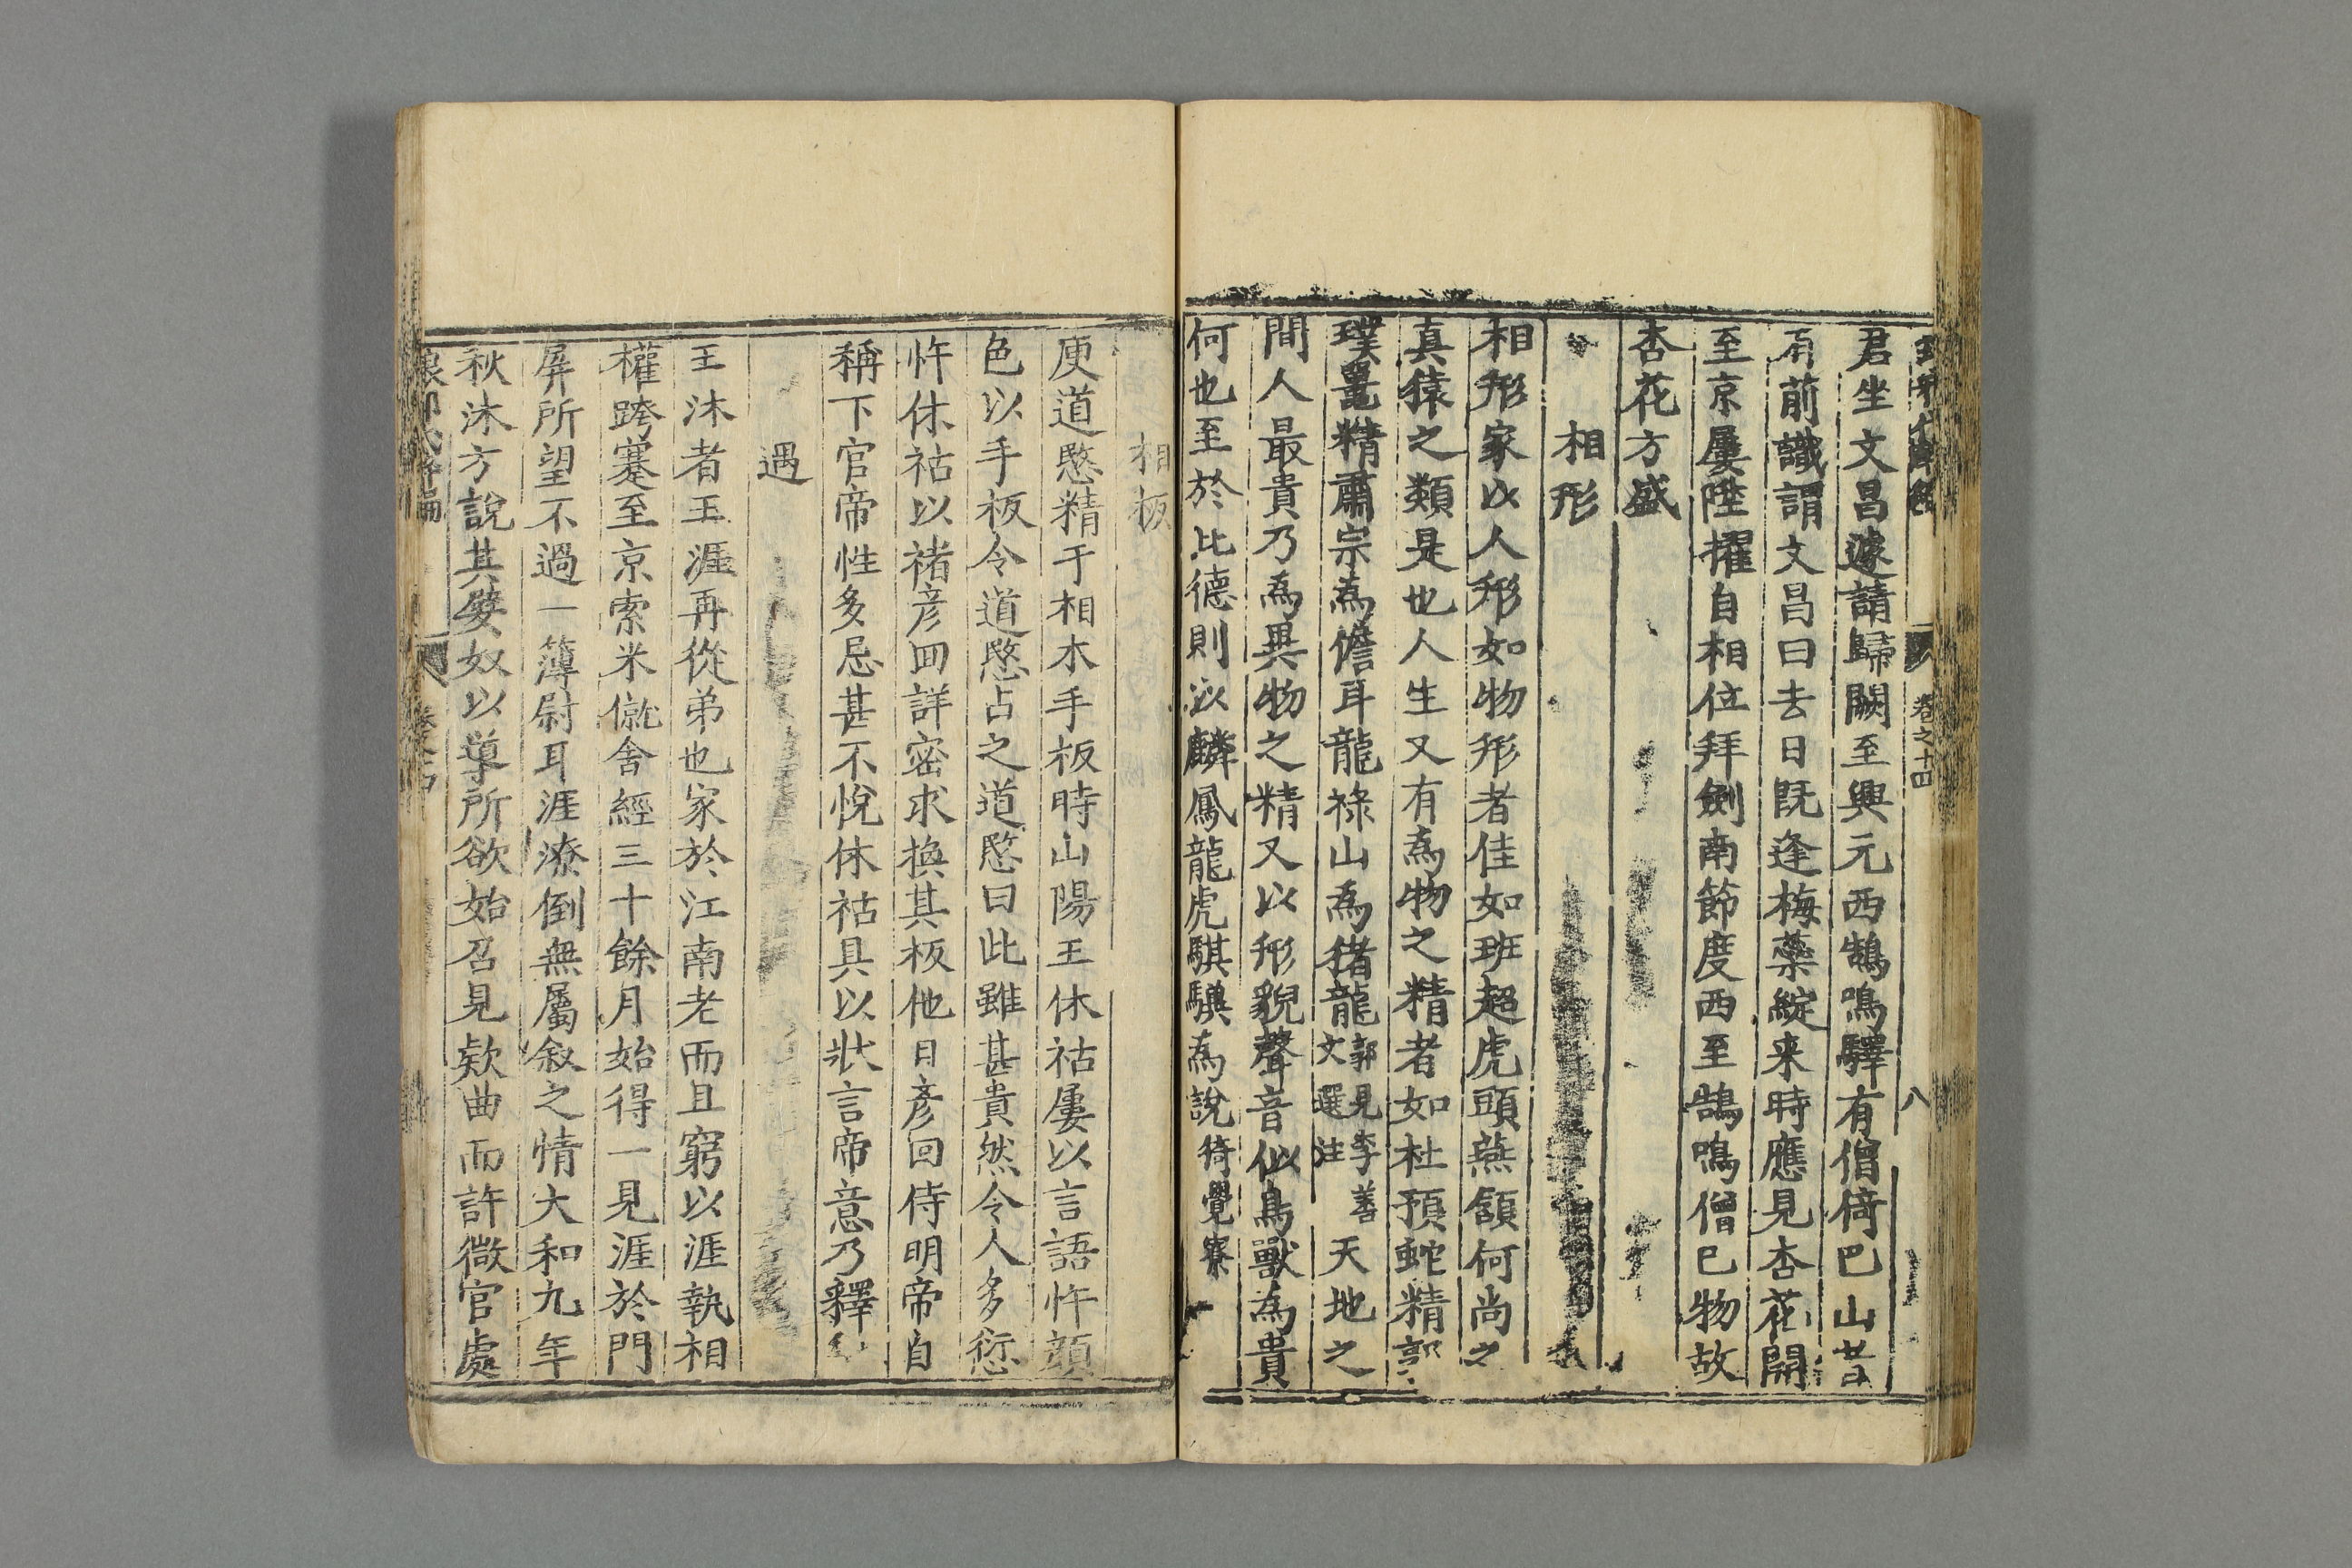 卷之十四
八
君坐文昌遽請歸闕至興元西鵠鳴驛有僧倚巴山昔
有前識謂文昌曰去日既逢梅蘂綻来時應見杏花開
至京屢陞擢自相位拜劍南節度西至鵠鳴僧已物故
杏花方盛
相形
相形家以人形如物形者佳如班超虎頭燕頷何尚之
真猿之類是也人生又有為物之精者如杜預蛇精郭
璞鼉精肅宗為儋耳龍祿山為猪龍郭見李善文選注天地之
間人最貴乃為異物之精又以形貌聲音似鳥獸為貴
何也至於比德則以麟鳳龍虎騏驥為說猗覺寮
相板
庾道愍精于相木手板時山陽王休祐屢以言語忤顔
色以手板令道愍占之道愍曰此雖甚貴然令人多愆
忤休祐以褚彦回詳密求換其板他日彥回侍明帝自
稱下官帝性多忌甚不悅休祐具以狀言帝意乃釋
遇
王沐者王涯再從弟也家於江南老而且窮以涯執相
權跨蹇至京索米僦舍經三十餘月始得一見涯於門
屏所望不過一簿尉耳涯潦倒無屬叙之情大和九年
秋沐方說其嬖奴以導所欲始召見欵曲而許微官處